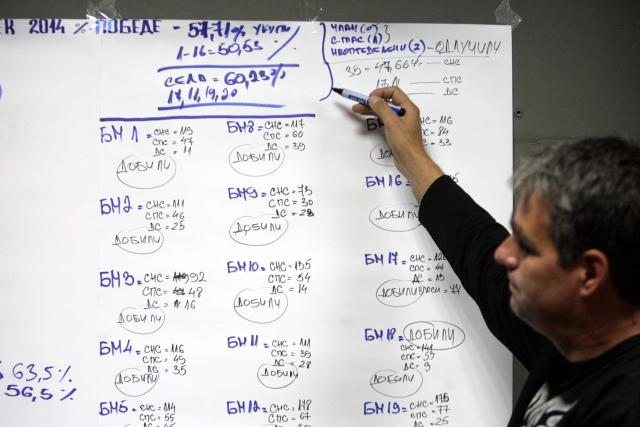 ЕК 2014 % ПОБЕДЕ - 57,71%
1-16 = 50,53 %
СЕЛА = 60,23%
17, 18, 19, 20
ЧЛАН (0)
С.ГЛАС (1)
НЕОПРЕДЕЛЕНИ (2) - ОДЛУЧИЛИ
35 = 47,66% СНС
СПС
ДС
БМ 1 = СНС = 119
СПС = 47
ДС = 11
ДОБИЛИ
БМ2 = СНС = 111
СПС = 46
ДС = 25
ДОБИЛИ
БМ3 = СНС = 92
СПС = 48
ДС = 16
ДОБИЛИ
БМ4 = СНС = 116
СПС = 45
ДС = 35
ДОБИЛИ
БМ5 = СНС = 114
СПС = 55
БМ8 = СНС = 117
СПС = 60
ДС = 39
ДОБИЛИ
БМ9 = СНС = 73
СПС = 30
ДС = 28
ДОБИЛИ
БМ10 = СНС = 135
СПС = 54
ДС = 14
ДОБИЛИ
БМ11 = СНС = 111
СПС = 39
ДС = 28
ДОБИЛИ
БМ12 = СНС = 148
СПС = 67
СНС = 116
СПС = 84
ДС = 33
БМ16
ДОБИЛИ
БМ17 = СНС = 126
СПС = 44
ДС = 13
ДОБИЛИ ВЛАСИ = 77
БМ18 = ДОБИЛИ
СНС = 141
СПС = 39
ДС = 9
ДОБИЛИ
БМ19 = СНС = 176
СПС = 77
ДС = 25
63,5%
56,5%